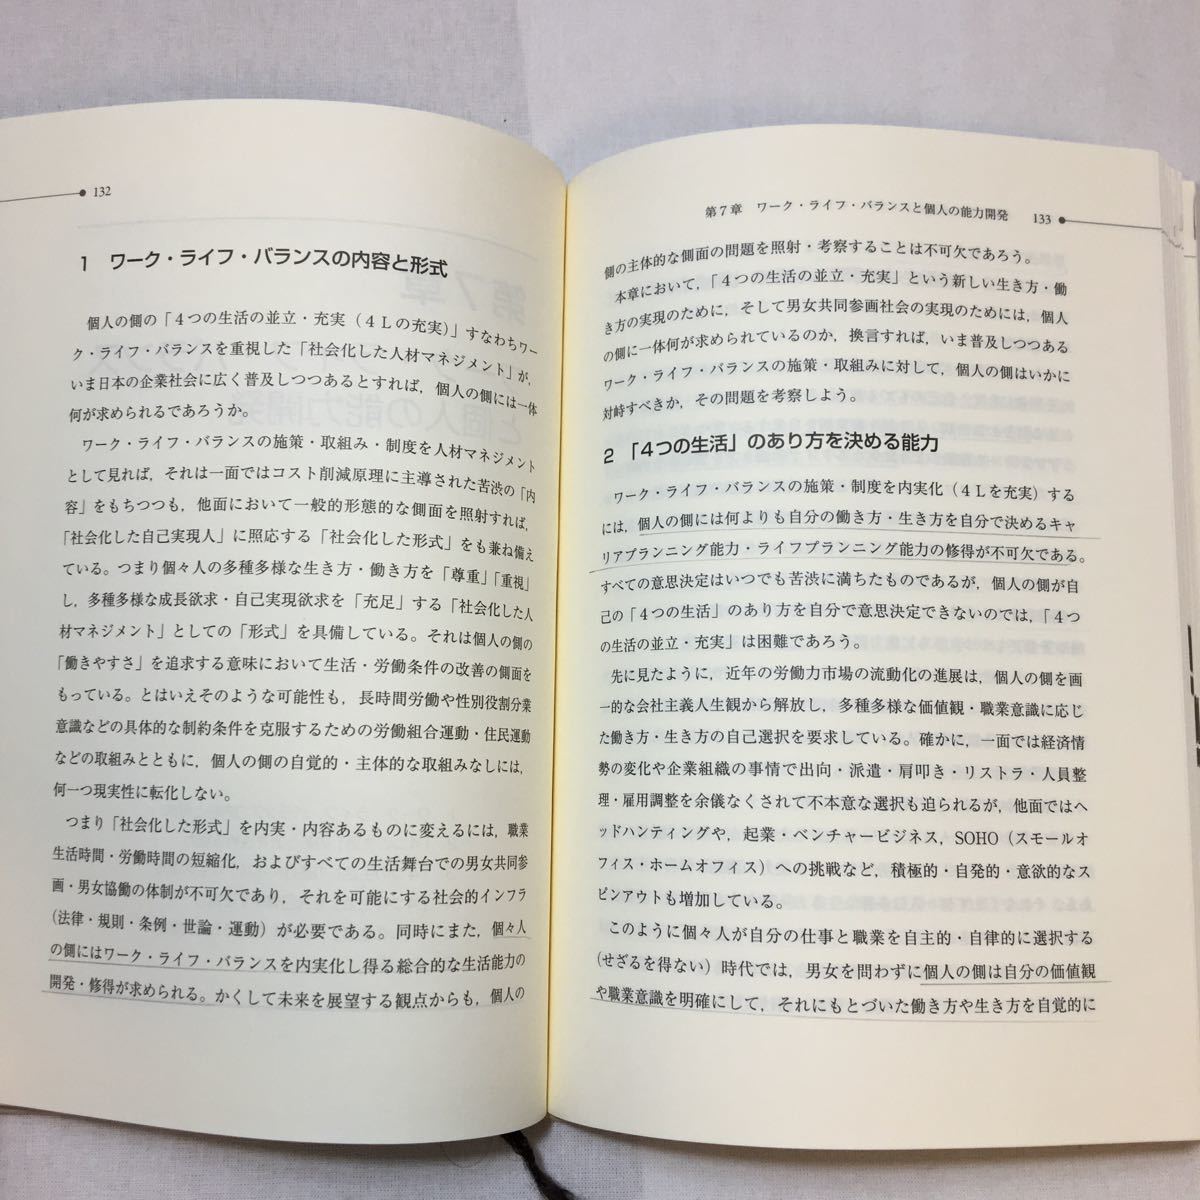 132
1 ワーク・ライフ・バランスの内容と形式
個人の側の「4つの生活の並立・充実（4Lの充実）」すなわちワー
ク・ライフ・バランスを重視した「社会化した人材マネジメント」が，
いま日本の企業社会に広く普及しつつあるとすれば，個人の側には一体
何が求められるであろうか。
ワーク・ライフ・バランスの施策・取組み・制度を人材マネジメント
として見れば，それは一面ではコスト削減原理に主導された苦渋の「内
容」をもちつつも，他面において一般的形態的な側面を照射すれば，
「社会化した自己実現人」に照応する「社会化した形式」をも兼ね備え
ている。つまり個々人の多種多様な生き方・働き方を「尊重」「重視」
し，多種多様な成長欲求・自己実現欲求を「充足」する「社会化した人
材マネジメント」としての「形式」を具備している。それは個人の側の
「働きやすさ」を追求する意味において生活・労働条件の改善の側面を
もっている。とはいえそのような可能性も，長時間労働や性別役割分業
意識などの具体的な制約条件を克服するための労働組合運動・住民運動
などの取組みとともに，個人の側の自覚的・主体的な取組みなしには，
何一つ現実性に転化しない。
つまり「社会化した形式」を内実・内容あるものに変えるには，職業
生活時間・労働時間の短縮化，およびすべての生活舞台での男女共同参
画・男女協働の体制が不可欠であり，それを可能にする社会的インフラ
（法律・規則・条例・世論・運動）が必要である。同時にまた，個々人
の側にはワーク・ライフ・バランスを内実化し得る総合的な生活能力の
開発・修得が求められる。かくして未来を展望する観点からも，個人の
第7章 ワーク・ライフ・バランスと個人の能力開発 133
側の主体的な側面の問題を照射・考察することは不可欠であろう。
本章において，「4つの生活の並立・充実」という新しい生き方・働
き方の実現のために，そして男女共同参画社会の実現のためには，個人
の側に一体何が求められているのか，換言すれば，いま普及しつつある
ワーク・ライフ・バランスの施策・取組みに対して，個人の側はいかに
対峙すべきか，その問題を考察しよう。
2 「4つの生活」のあり方を決める能力
ワーク・ライフ・バランスの施策・制度を内実化（4Lを充実）する
には，個人の側には何よりも自分の働き方・生き方を自分で決めるキャ
リアプランニング能力・ライフプランニング能力の修得が不可欠である。
すべての意思決定はいつでも苦渋に満ちたものであるが，個人の側が自
己の「4つの生活」のあり方を自分で意思決定できないのでは，「4つ
の生活の並立・充実」は困難であろう。
先に見たように，近年の労働力市場の流動化の進展は，個人の側を画
一的な会社主義人生観から解放し，多種多様な価値観・職業意識に応じ
た働き方・生き方の自己選択を要求している。確かに，一面では経済情
勢の変化や企業組織の事情で出向・派遣・肩叩き・リストラ・人員整
理・雇用調整を余儀なくされて不本意な選択も迫られるが，他面ではヘ
ッドハンティングや，起業・ベンチャービジネス，SOHO（スモールオ
フィス・ホームオフィス）への挑戦など，積極的・自発的・意欲的なス
ピンアウトも増加している。
このように個々人が自分の仕事と職業を自主的・自律的に選択する
（せざるを得ない）時代では，男女を問わずに個人の側は自分の価値観
や職業意識を明確にして，それにもとづいた働き方や生き方を自覚的に